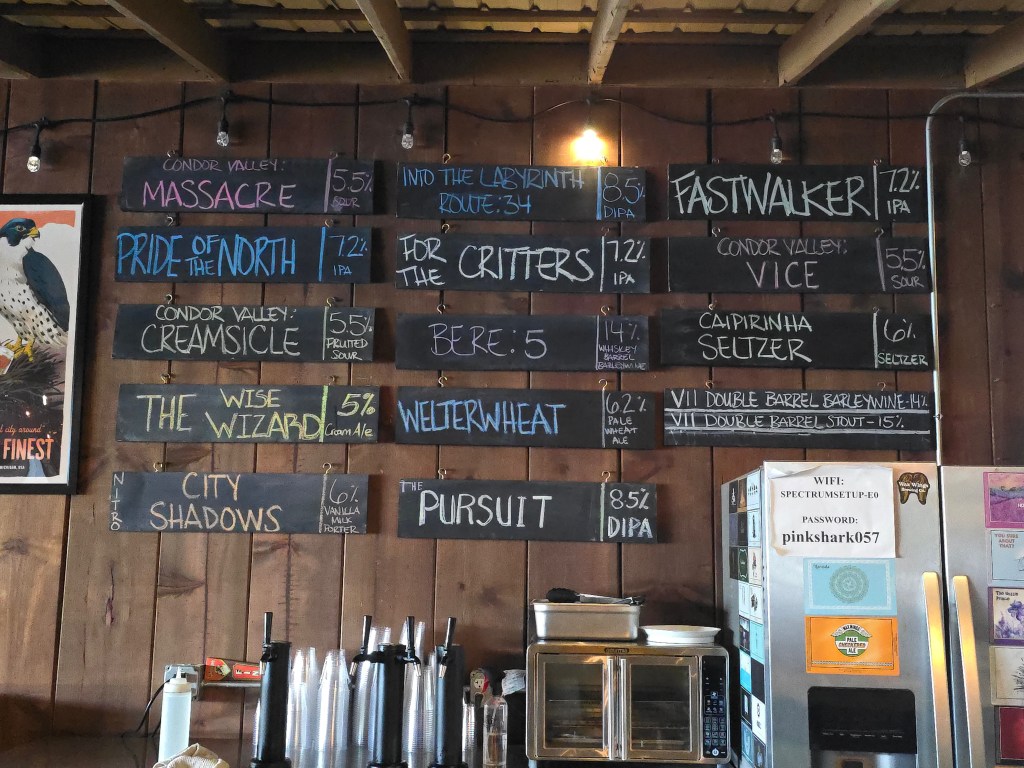 CONDOR VALLEY:
MASSACRE
5.5%
SOUR
PRIDE OF THE NORTH
7.2%
IPA
CONDOR VALLEY:
CREAMSICLE
5.5%
FRUITED
SOUR
THE WISE WIZARD
5%
Cream Ale
NITRO
CITY
SHADOWS
6%
VANILLA
MILK
PORTER
INTO THE LABYRINTH
ROUTE: 34
8.5%
DIPA
FOR THE CRITTERS
7.2%
IPA
BERE: 5
14%
WHISKEY
BARREL
BARLEYWINE
WELTERWHEAT
6.2%
PALE
WHEAT
ALE
THE PURSUIT
8.5%
DIPA
FASTWALKER
7.2%
IPA
CONDOR VALLEY:
VICE
5.5%
SOUR
CAIPIRINHA
SELTZER
6%
SELTZER
VII DOUBLE BARREL BARLEYWINE-14%
VII DOUBLE BARREL STOUT-15%
d city around
FINEST
WIFI:
SPECTRUMSETUP-E0
PASSWORD:
pinkshark057
Wax Wings
Brewing Co.
PALE
ALE
YOU SURE
ABOUT
THAT?